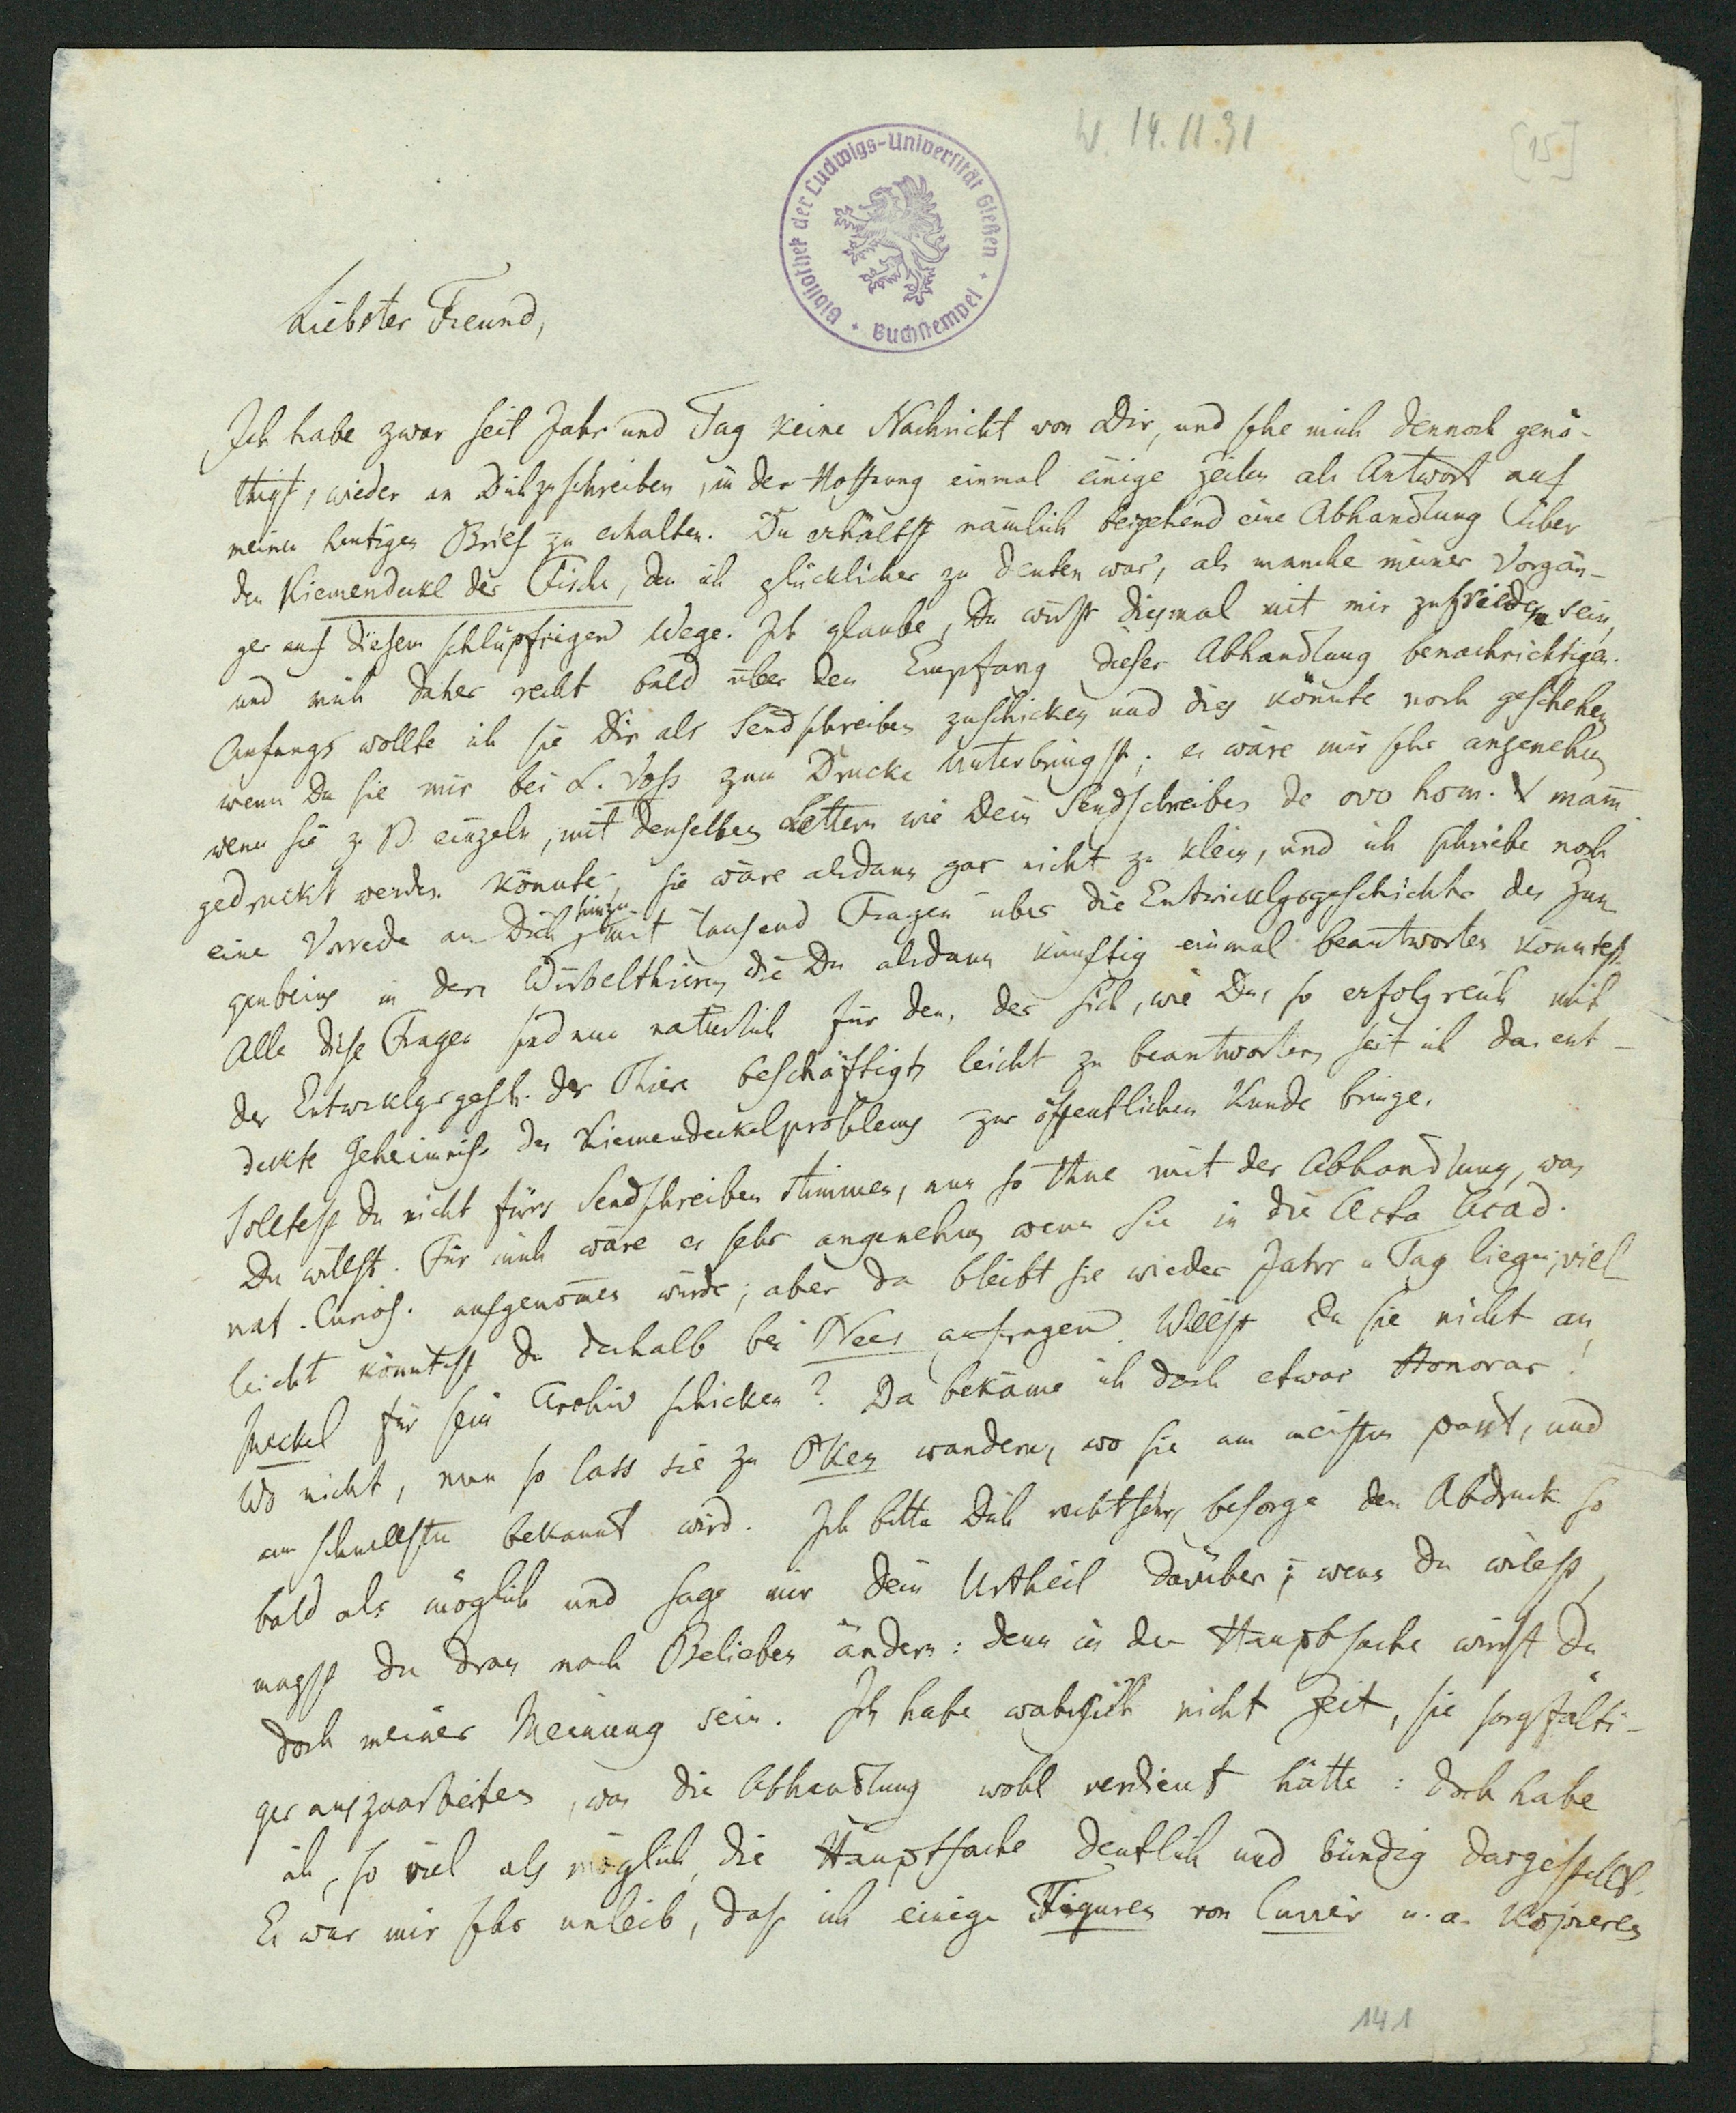 W. 14.11.31
[15]
Bibliothek der Ludwigs-Universität Gießen
Buchstempel
Liebster Freund,
Ich habe zwar seit Jahr und Tag keine Nachricht von Dir, und sehe mich dennoch genö-
thigt, wieder an Dich zu schreiben, in der Hoffnung einmal einige Zeilen als Antwort auf
meinen heutigen Brief zu erhalten. Du erhältst nämlich beigehend eine Abhandlung über
den Kiemendeckel der Fische, den ich glücklicher zu deuten war, als manche meiner Vorgän-
ger auf diesem schlüpfrigen Wege. Ich glaube, Du wirst diesmal mit mir zufrieden sein,
und mich daher recht bald über den Empfang dieser Abhandlung benachrichtigen.
Anfangs wollte ich sie Dir als Sendschreiben zuschicken und dies könnte noch geschehen
wenn Du sie mir bei L. Voss zum Drucke unterbringst; es wäre mir sehr angenehm
wenn sie z. B. einzeln, mit denselben Lettern wie Dein Sendschreiben de ovo hom. & mam̄
gedruckt werden könnte, sie wäre alsdann gar nicht zu klein, und ich schriebe noch
eine Vorrede an Dich hinzu mit tausend Fragen über die Entwicklgsgeschichte des Zun
genbeins in den Wirbelthieren, die Du alsdann künftig einmal beantworten könntest.
Alle diese Fragen sind nun natürlich für den, der sich, wie Du, so erfolgreich mit
der Entwicklgsgesch. der Thiere beschäftigt, leicht zu beantworten, seit ich das ent-
deckte Geheimniss des Kiemendeckelproblems zur öffentlichen Kunde bringe.
Solltest Du nicht fürs Sendschreiben stimmen, nun so thue mit der Abhandlung, was
Du willst. Für mich wäre es sehr angenehm, wenn sie in die Acta Acad.
nat. Curios. aufgenom̄en würde; aber da bleibt sie wieder Jahr u Tag liegen; viel-
leicht könntest Du deshalb bei Nees anfragen. Willst Du sie nicht an
Meckel für sein Archiv schicken? Da bekäme ich doch etwas Honorar!
Wo nicht, nun so lass sie zu Oken wandern, wo sie am meisten passt, und
am schnellsten bekannt wird. Ich bitte Dich recht sehr, besorge den Abdruck so
bald als möglich und sage mir Dein Urtheil darüber; wenn Du willst,
magst Du dran nach Belieben ändern: denn in der Hauptsache wirst Du
doch meiner Meinung sein. Ich habe wahrlich nicht Zeit, sie sorgfälti-
ger auszuarbeiten, was die Abhandlung wohl verdient hätte: doch habe
ich, so viel als möglich, die Hauptsache deutlich und bündig dargestellt.
Es war mir sehr unlieb, dass ich einige Figuren von Cuvier u. a. kopieren
141